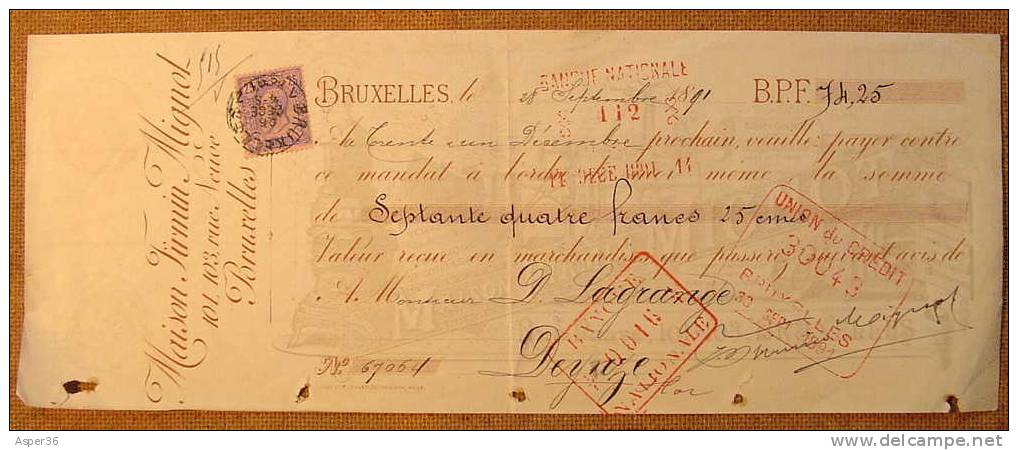 Maison Firmin Mignot
101, 103, rue Neuve
Bruxelles
515
BRUXELLES, le 28 Septembre 1891 B.P.F. 74,25
BANQUE NATIONALE
112
Au Trente un Décembre prochain, veuillez payer contre
ce mandat à l'ordre de moi même, la somme
de Septante quatre francs 25 cmes
Valeur reçue en marchandises que passerez suivant avis de
A Monsieur D. Lagrange
Deynze
No 67054
UNION du CRÉDIT
30043
BRUXELLES
30 SEPT 1891
BANQUE
NATIONALE
Mignot
Asper36
www.delcampe.net